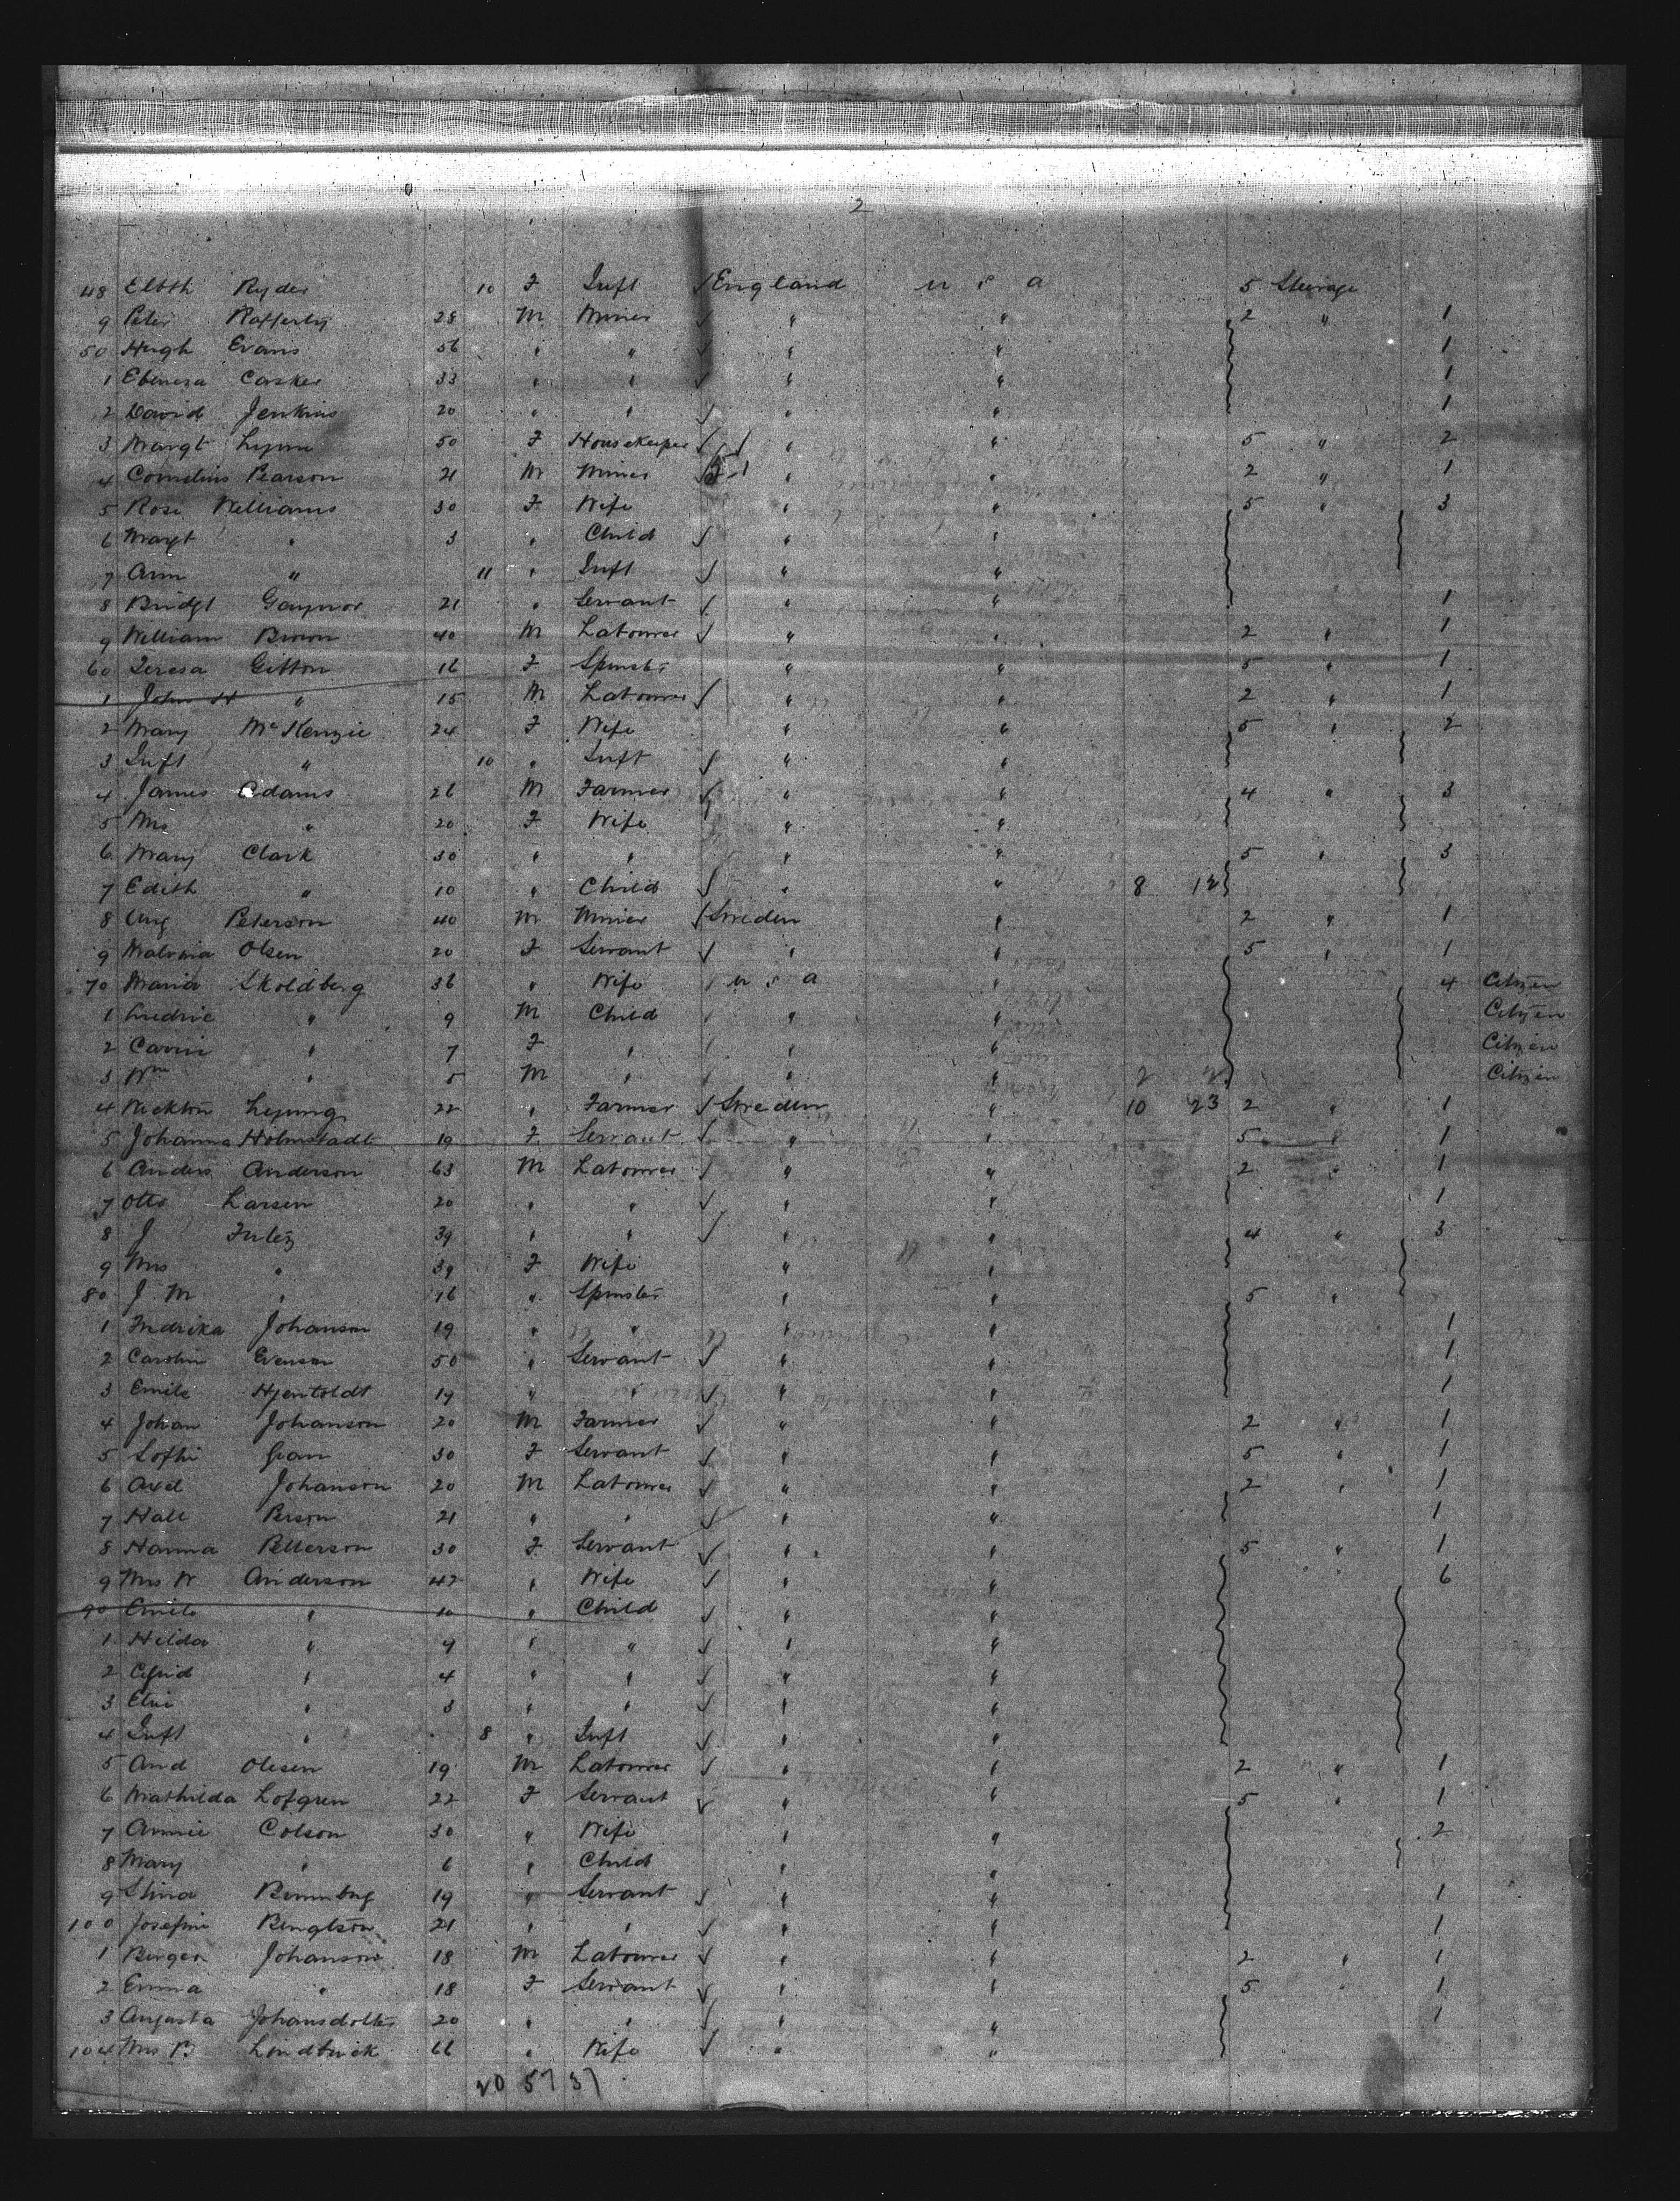 2
48 Elbth Ryder 10 F Inft √ England U S A 5 Steerage
9 Peter Rafferty 28 M Miner √ " " 2 " 1
50 Hugh Evans 56 " " √ " " 1
1 Ebeneza Casker 33 " " √ " " 1
2 David Jenkins 20 " " √ " " 1
3 Margt Lynn 50 F Housekeeper √ " " 5 " 2
4 Cornelius Pearson 21 M Miner " " 2 " 1
5 Rose Williams 30 F Wife " " 5 " 3
6 Margt " 3 " Child √ " "
7 Ann " 11 " Inft √ " "
8 Bridgt Gaynor 21 " Servant √ " " 1
9 William Brown 40 M Labourer √ " " 2 " 1
60 Teresa Gitton 16 F Spinster " " 5 " 1
1 John H " 15 M Labourer √ " " 2 " 1
2 Mary McKenzie 24 F Wife " " 5 " 2
3 Inft " 10 " Inft √ " "
4 James Adams 26 M Farmer √ " " 4 " 3
5 Mrs " 20 F Wife " "
6 Mary Clark 30 " " " " 5 " 3
7 Edith " 10 " Child √ " " 8 12
8 Aug Peterson 40 M Miner √ Sweden " 2 " 1
9 Malvina Olsen 20 F Servant √ " " 5 " 1
70 Maria Skoldberg 36 " Wife U S A " 4 Citizen
1 " 9 M Child " " Citizen
2 Carrie " 7 F " " " Citizen
3 Wm " 5 M " " " 2 Citizen
4 Ljung 22 " Farmer √ Sweden " 10 23 2 " 1
5 Johanna Holmstadt 19 F Servant √ " " 5 " 1
6 Anders Anderson 63 M Labourer √ " " 2 " 1
7 Otto Larsen 20 " " √ " " 1
8 J 39 " " √ " " 4 " 3
9 Mrs " 39 F Wife " "
80 J M " 16 " Spinster " " 5 "
1 Fredrika Johanson 19 " " " " 1
2 Carolin Evenson 50 " Servant √ " " 1
3 Emile 19 " " √ " " 1
4 Johan Johanson 20 M Farmer √ " " 2 " 1
5 Sofhi 30 F Servant √ " " 5 " 1
6 Axel Johanson 20 M Labourer √ " " 2 " 1
7 Hall Person 21 " " √ " " 1
8 Hanna Petterson 30 F Servant √ " " 5 " 1
9 Mrs W Anderson 42 " Wife √ " " 6
90 Emile " 10 " Child √ " "
1 Hilda " 9 " " √ " "
2 " 4 " " √ " "
3 " 3 " " √ " "
4 Inft " 8 " Inft √ " "
5 And Olesen 19 M Labourer √ " " 2 " 1
6 Mathilda Lofgren 22 F Servant √ " " 5 " 1
7 Annie Colson 30 " Wife " " 2
8 Mary " 6 " Child " "
9 Stina 19 " Servant √ " " 1
100 Josefin Bengtson 21 " " √ " " 1
1 Birger Johanson 18 M Labourer √ " " 2 " 1
2 Emma " 18 F Servant √ " " 5 " 1
3 Augusta Johansdotter 20 " " √ " " 1
104 Mrs B 66 " Wife √ " "
20 57 37